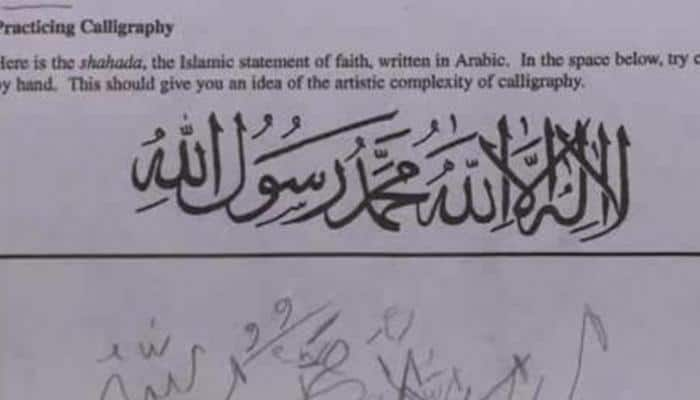 Practicing Calligraphy
Here is the shahada, the Islamic statement of faith, written in Arabic. In the space below, try
by hand. This should give you an idea of the artistic complexity of calligraphy.
لا إله إلا الله محمد رسول الله